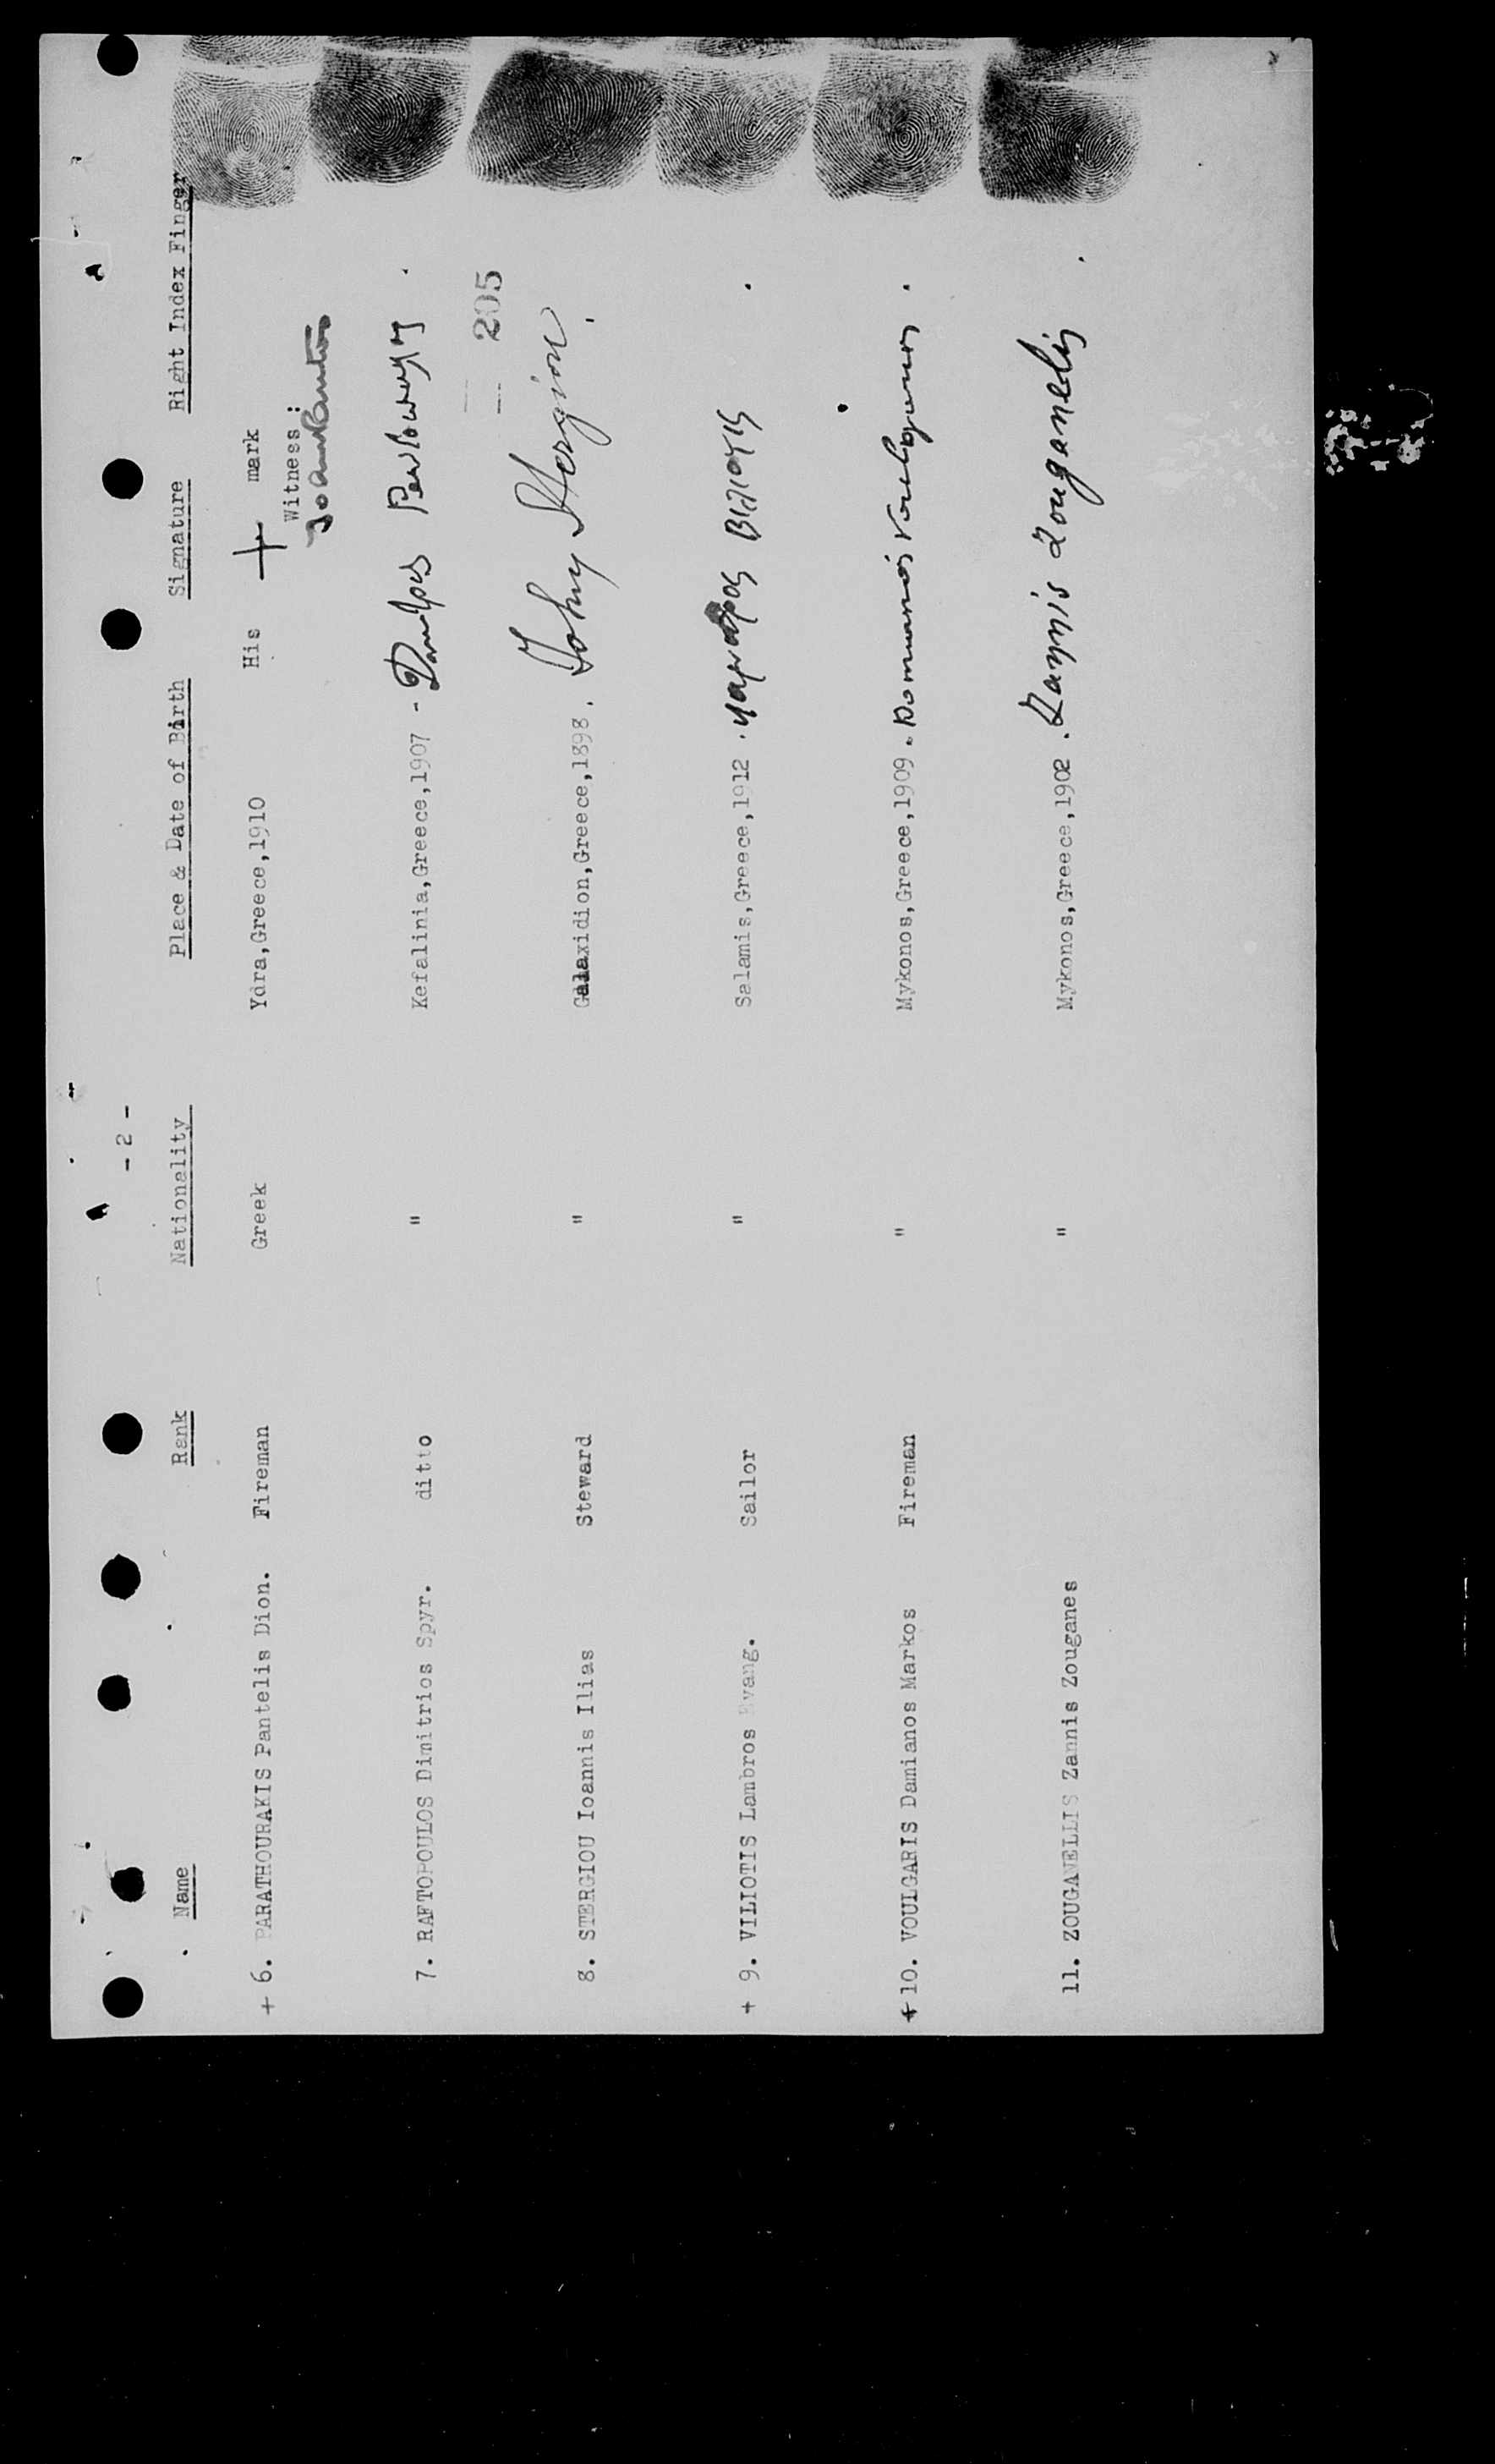 - 2 -
Name Rank Nationality Place & Date of Birth Signature Right Index Finger
+ 6. PARATHOURAKIS Pantelis Dion. Fireman Greek Ydra,Greece,1910 His + mark
Witness:
7. RAFTOPOULOS Dimitrios Spyr. ditto " Kefalinia,Greece,1907 -
205
8. STERGIOU Ioannis Ilias Steward " Galaxidion,Greece,1898. Johny Stergiou
+ 9. VILIOTIS Lambros Evang. Sailor " Salamis,Greece,1912. Λαμπρος Βιλιοτις
+ 10. VOULGARIS Damianos Markos Fireman " Mykonos,Greece,1909.
11. ZOUGANELLIS Zannis Zouganes " Mykonos,Greece,1902. Zannis Zouganelis